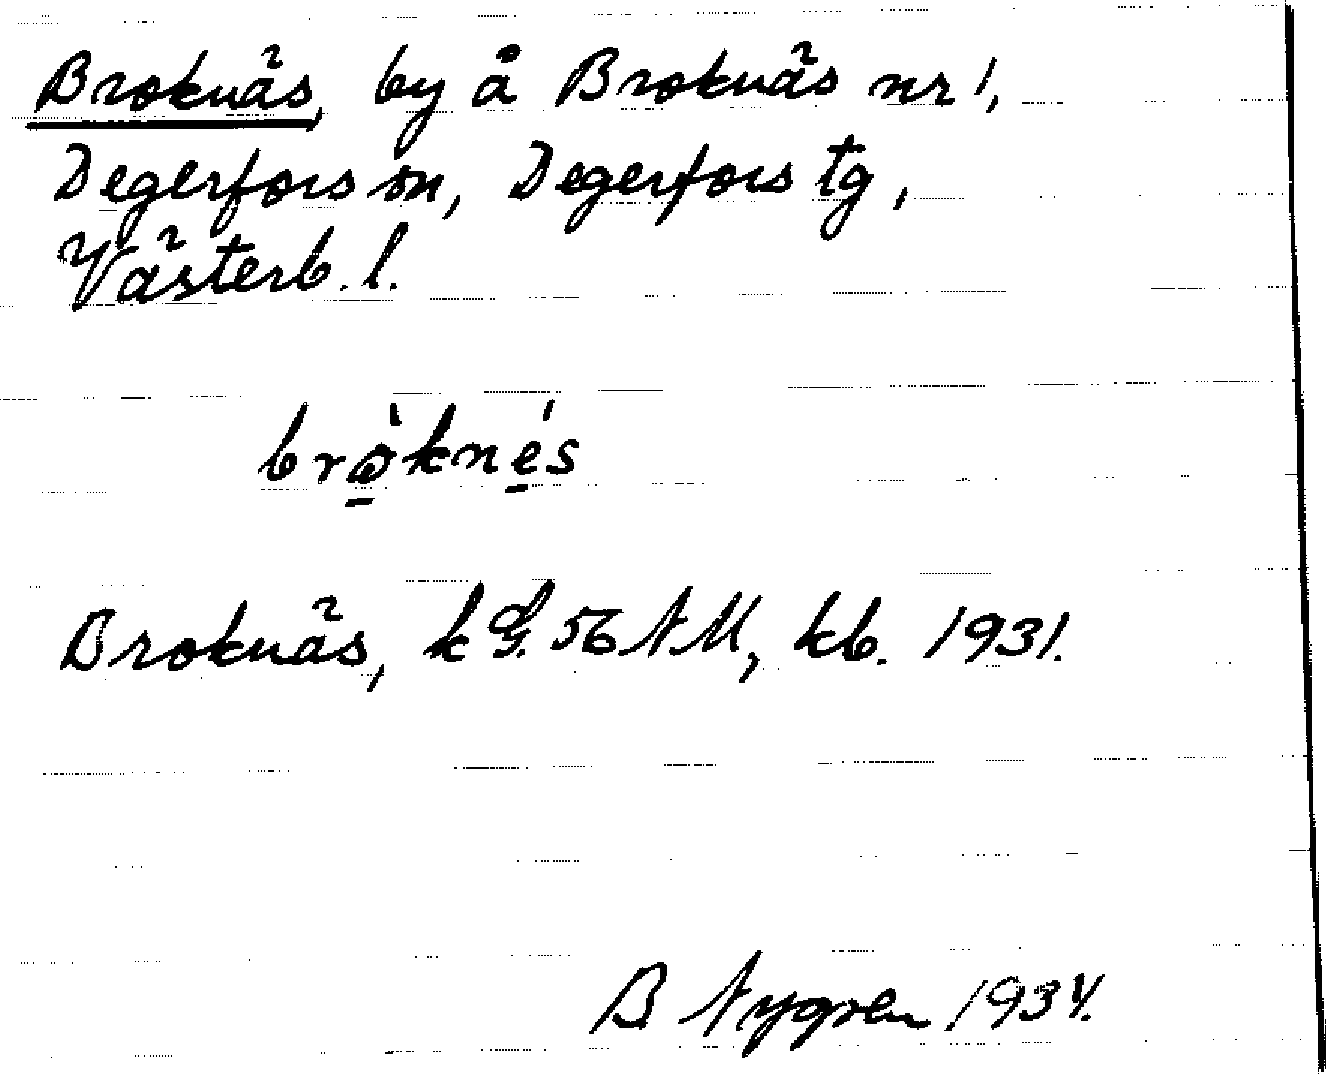 Broknäs, by å Broknäs nr 1,
Degerfors sn, Degerfors tg,
Västerb. l.
brò̱kné̱s
Broknäs, k G. 56 NM, kb. 1931.
B Nygren 1934.